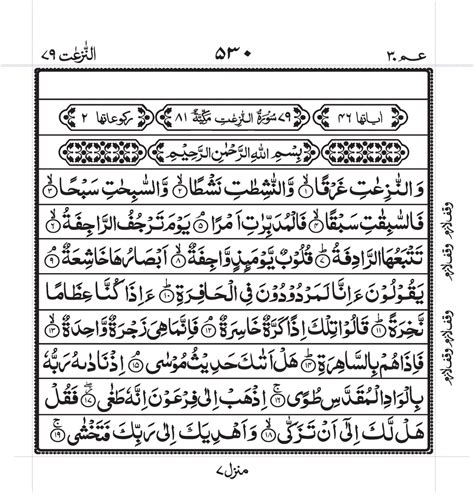 عمّ ٣٠ ٥٣٠ النّٰزعٰت ٧٩
اٰیاتها ٤٦ ٧٩ سُوْرَةُ النّٰزِعٰتِ مَکِّیَّةٌ ٨١ رکوعاتها ٢
بِسْمِ اللّٰهِ الرَّحْمٰنِ الرَّحِیْمِ
وَالنّٰزِعٰتِ غَرْقًا ۝١ وَّالنّٰشِطٰتِ نَشْطًا ۝٢ وَّالسّٰبِحٰتِ سَبْحًا ۝٣
فَالسّٰبِقٰتِ سَبْقًا ۝٤ فَالْمُدَبِّرٰتِ اَمْرًا ۝٥ یَوْمَ تَرْجُفُ الرَّاجِفَةُ ۝٦
تَتْبَعُهَا الرَّادِفَةُ ۝٧ قُلُوْبٌ یَّوْمَىِٕذٍ وَّاجِفَةٌ ۝٨ اَبْصَارُهَا خَاشِعَةٌ ۝٩
یَقُوْلُوْنَ ءَاِنَّا لَمَرْدُوْدُوْنَ فِی الْحَافِرَةِ ۝١٠ ءَاِذَا كُنَّا عِظَامًا
نَّخِرَةً ۝١١ قَالُوْا تِلْكَ اِذًا كَرَّةٌ خَاسِرَةٌ ۝١٢ فَاِنَّمَا هِیَ زَجْرَةٌ وَّاحِدَةٌ ۝١٣
فَاِذَا هُمْ بِالسَّاهِرَةِ ۝١٤ هَلْ اَتٰىكَ حَدِیْثُ مُوْسٰی ۝١٥ اِذْ نَادٰىهُ رَبُّهٗ
بِالْوَادِ الْمُقَدَّسِ طُوًی ۝١٦ اِذْهَبْ اِلٰی فِرْعَوْنَ اِنَّهٗ طَغٰی ۝١٧ فَقُلْ
هَلْ لَّكَ اِلٰۤی اَنْ تَزَكّٰی ۝١٨ وَاَهْدِیَكَ اِلٰی رَبِّكَ فَتَخْشٰی ۝١٩
وقف لازم وقف لازم
وقف لازم وقف لازم
منزل ٧